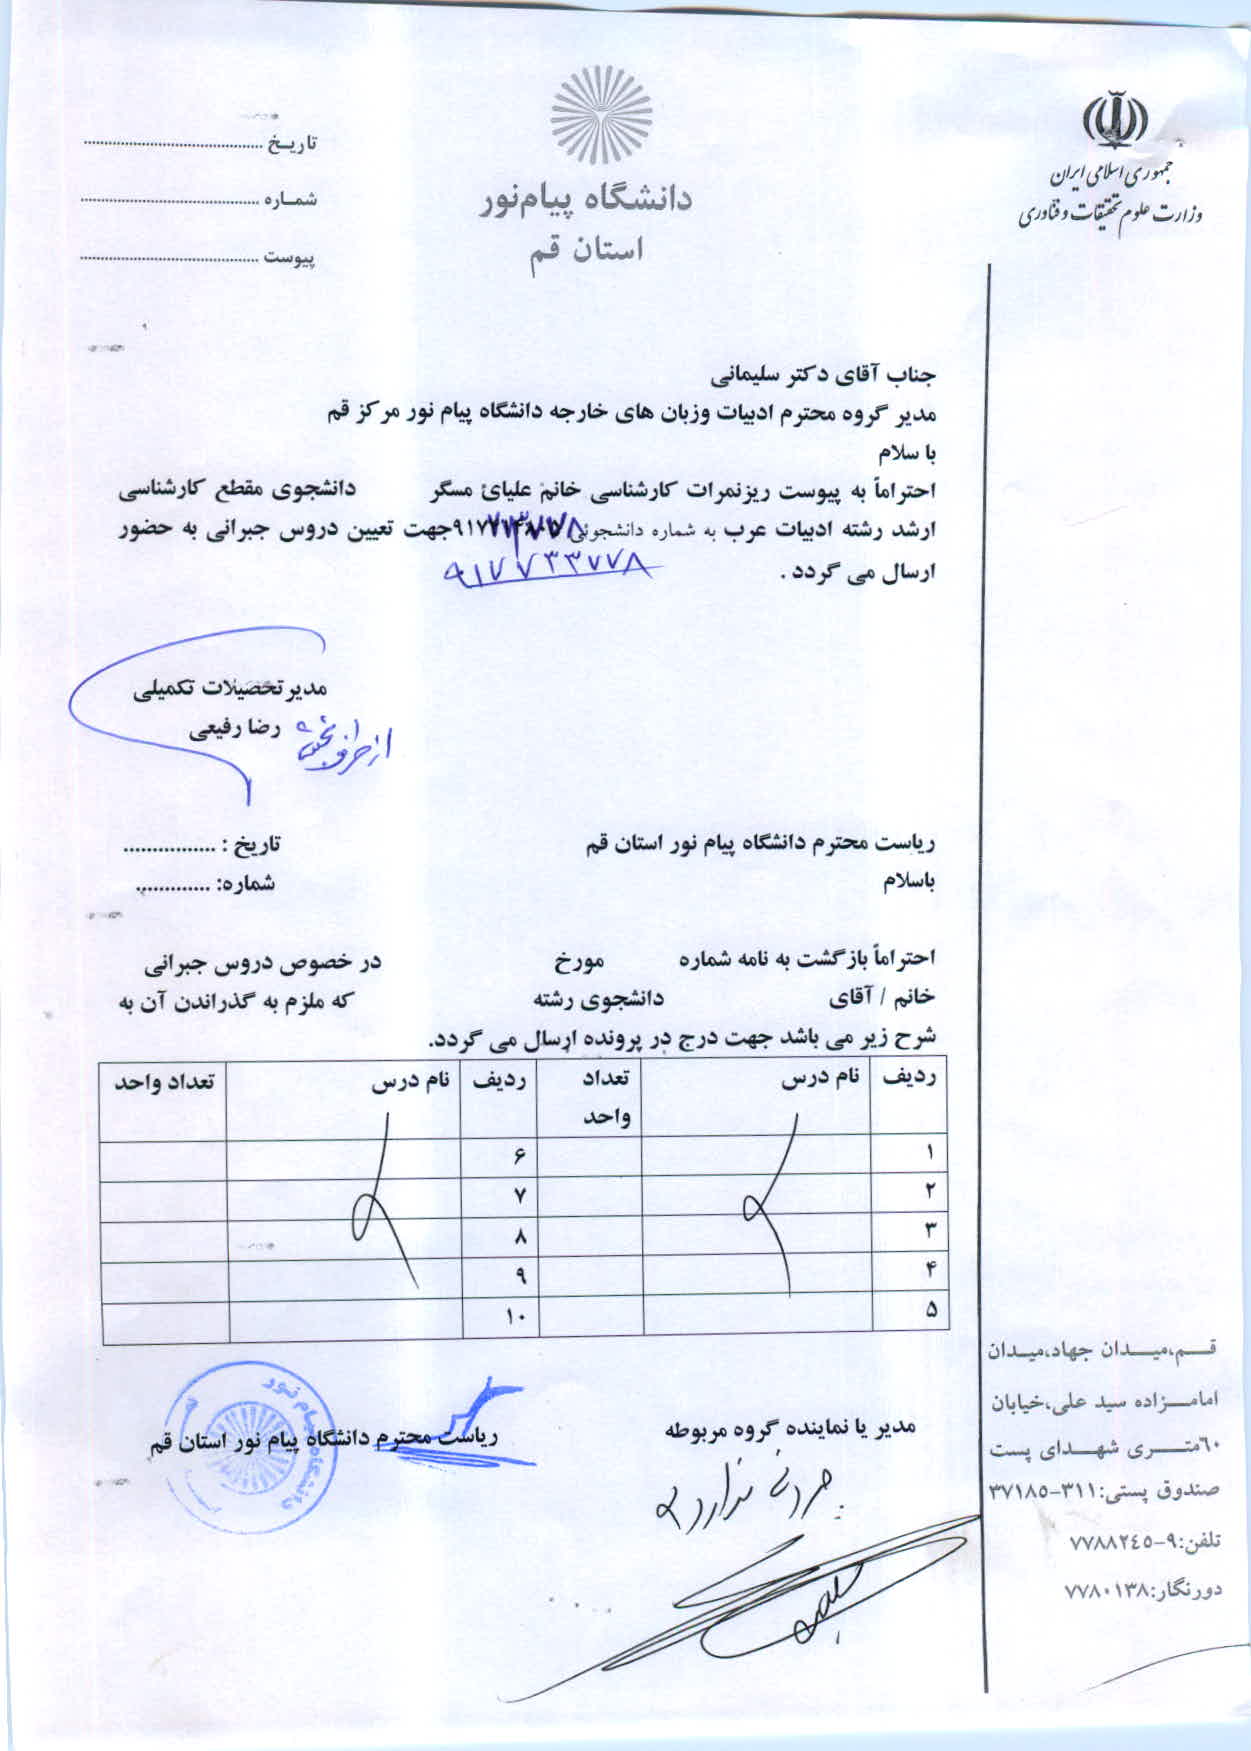 جمهوری اسلامی ایران
وزارت علوم تحقیقات و فناوری
دانشگاه پیام‌نور
استان قم
تاریـخ ............................................
شمـاره ............................................
پیوست ............................................
جناب آقای دکتر سلیمانی
مدیر گروه محترم ادبیات وزبان های خارجه دانشگاه پیام نور مرکز قم
با سلام
احتراماً به پیوست ریزنمرات کارشناسی خانم علیائ مسگر دانشجوی مقطع کارشناسی
ارشد رشته ادبیات عرب به شماره دانشجوئی جهت تعیین دروس جبرانی به حضور
ارسال می گردد .
۹۱۷۷۳۳۷۷۸
مدیرتحصیلات تکمیلی
رضا رفیعی
از طرف
ریاست محترم دانشگاه پیام نور استان قم
تاریخ : ................
باسلام
شماره: .............
احتراماً بازگشت به نامه شماره مورخ در خصوص دروس جبرانی
خانم / آقای دانشجوی رشته که ملزم به گذراندن آن به
شرح زیر می باشد جهت درج در پرونده ارسال می گردد.
ردیف نام درس تعداد واحد ردیف نام درس تعداد واحد
۱ ۶
۲ ۷
۳ ۸
۴ ۹
۵ ۱۰
مدیر یا نماینده گروه مربوطه
ریاست محترم دانشگاه پیام نور استان قم
ندارد
دانشگاه پیام نور
قـــم،میـــدان جهاد،میـدان
امامـــزاده سید علی،خیابان
۶۰متــــری شهــدای پست
صندوق پستی:۳۱۱-۳۷۱۸۵
تلفن:۹-۷۷۸۸۲٤۵
دورنگار:۷۷۸۰۱۳۸